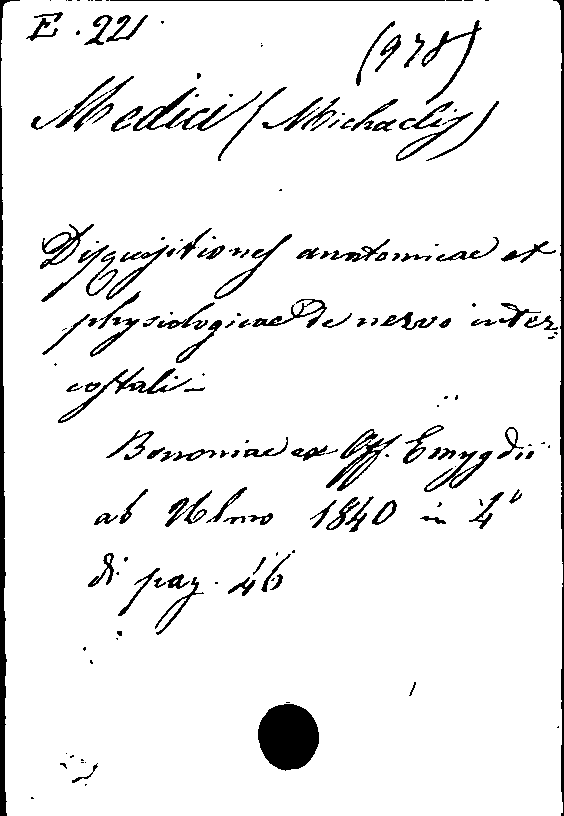 E. 221.
(978)
Medici (Michaelis)
Disquisitiones anatomicae et
physiologicae de nervo inter-
costali -
Bononiae ex Off. Emygdii
ab Ulmo 1840 in 4°
di pag. 46